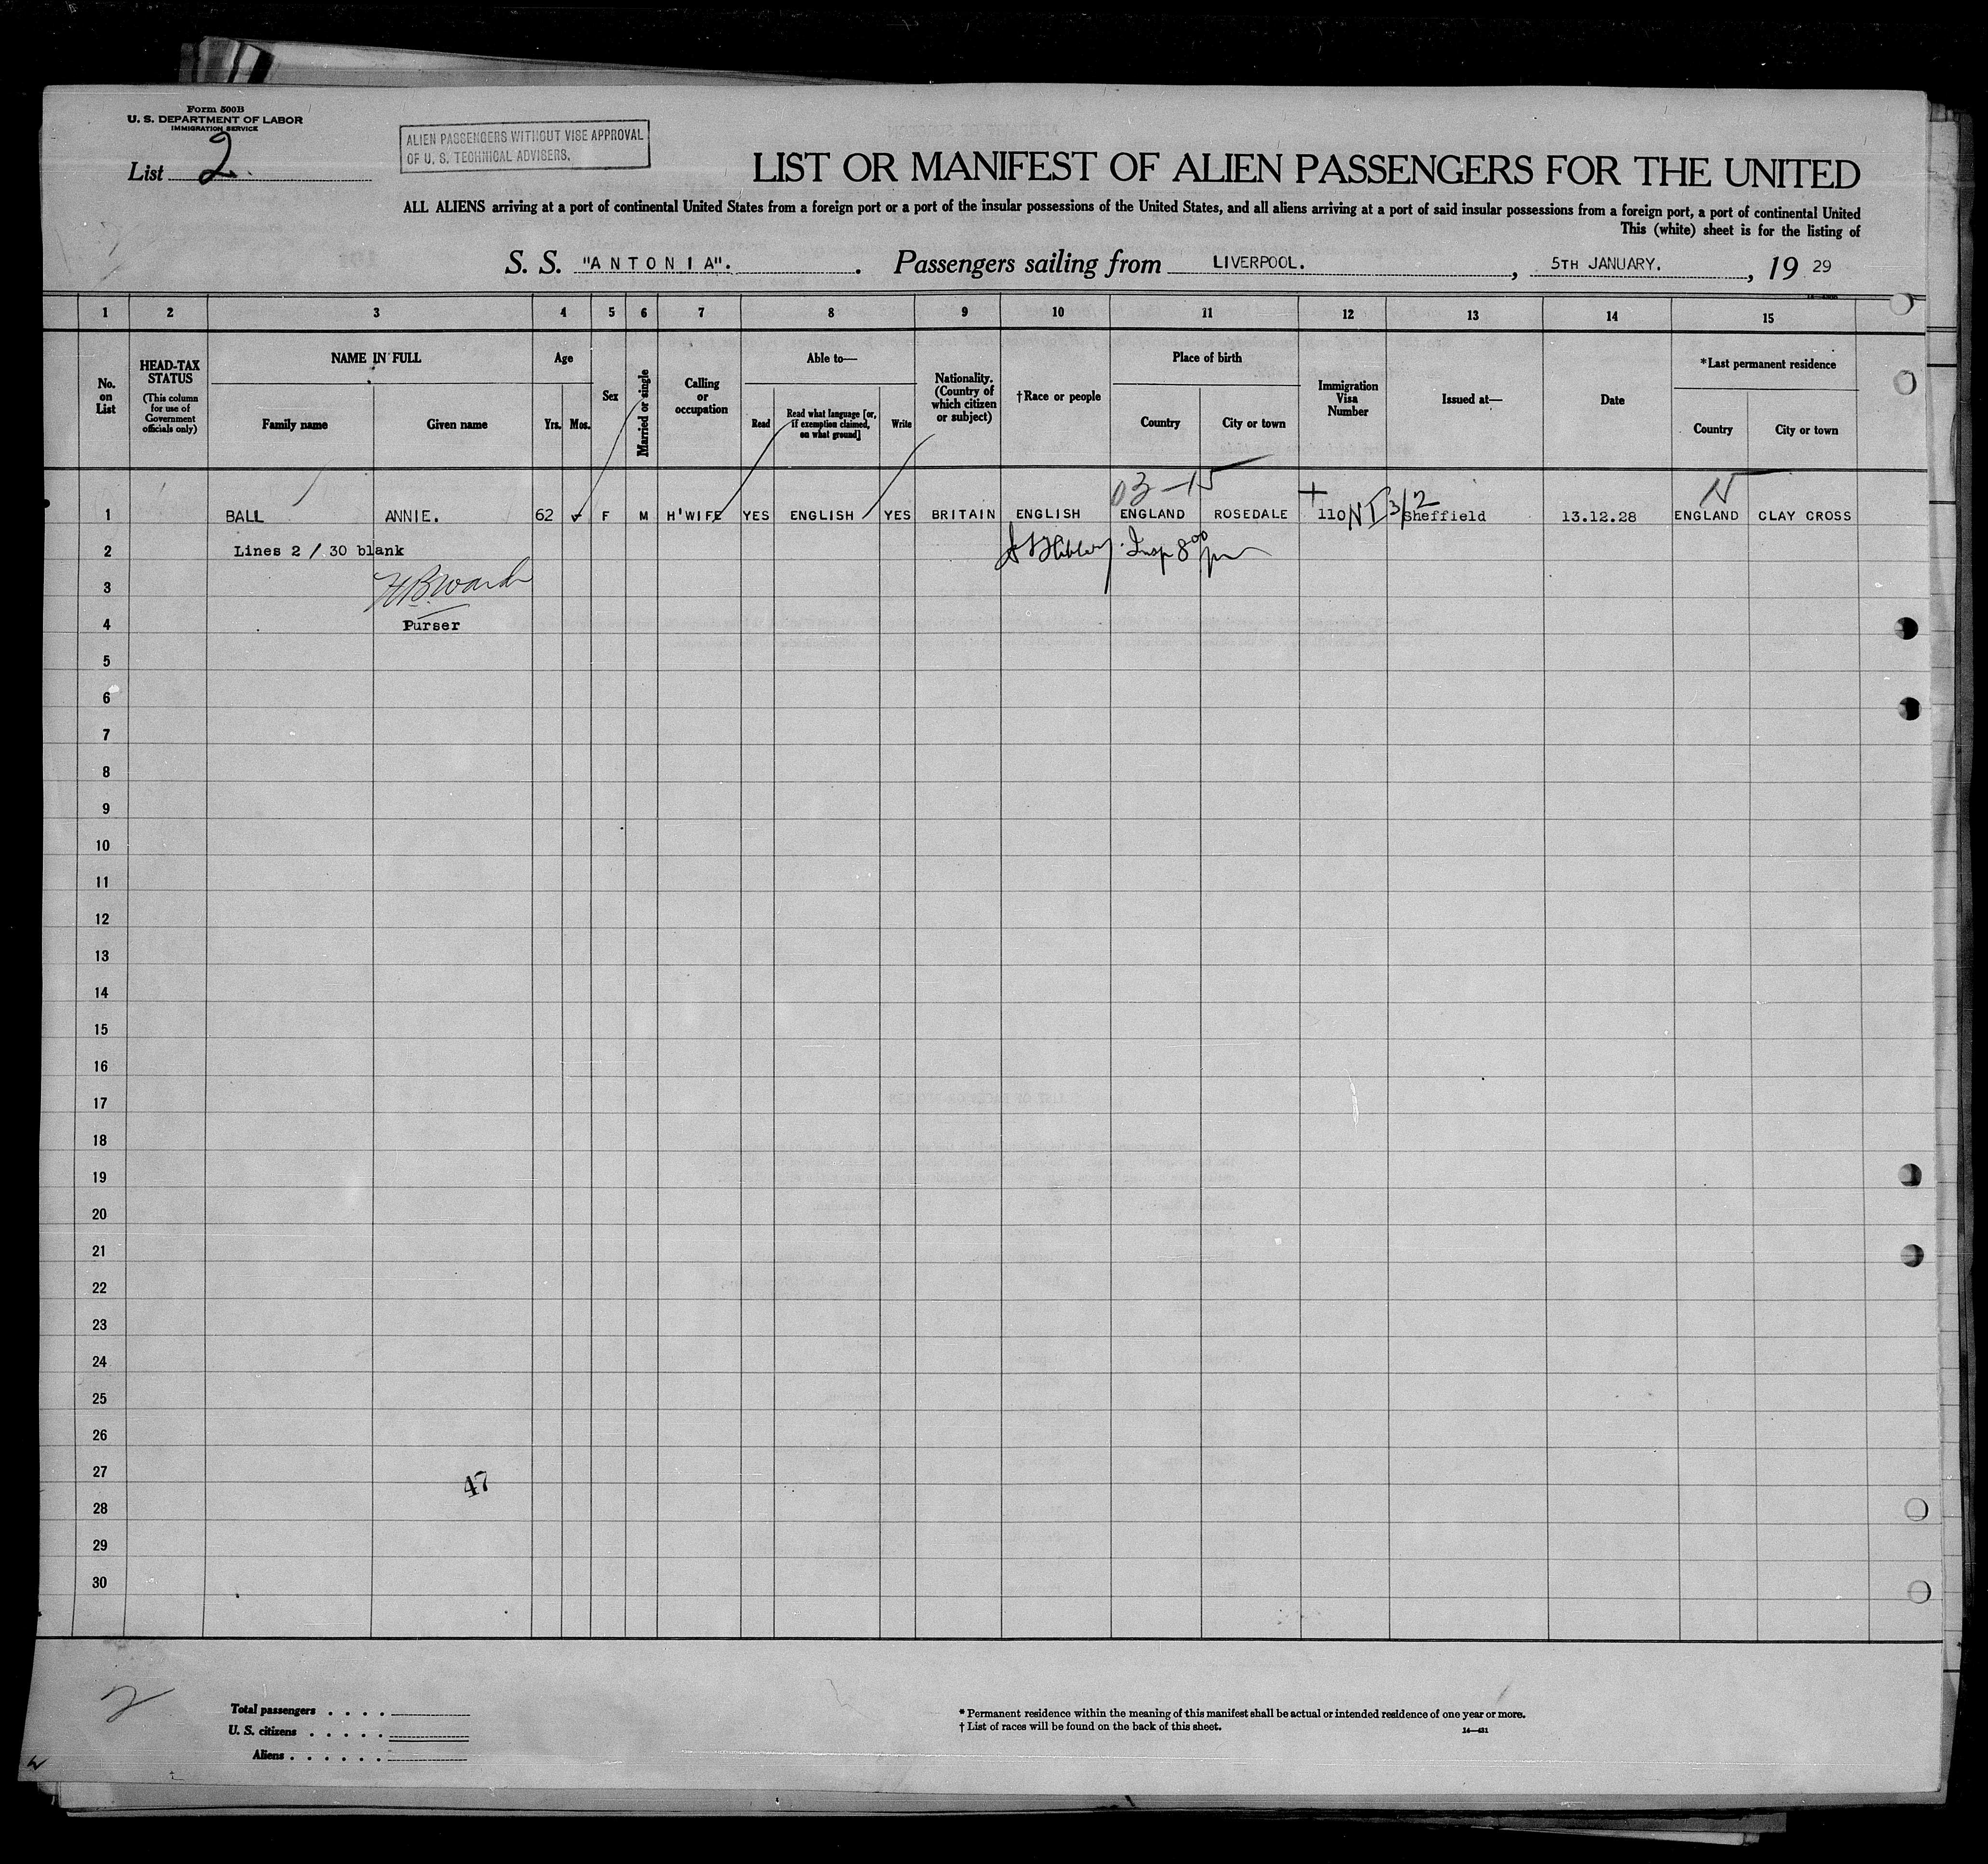 Form 500B
U. S. DEPARTMENT OF LABOR
IMMIGRATION SERVICE
List 2.
ALIEN PASSENGERS WITHOUT VISE APPROVAL
OF U. S. TECHNICAL ADVISERS.
LIST OR MANIFEST OF ALIEN PASSENGERS FOR THE UNITED
ALL ALIENS arriving at a port of continental United States from a foreign port or a port of the insular possessions of the United States, and all aliens arriving at a port of said insular possessions from a foreign port, a port of continental United
This (white) sheet is for the listing of
S. S. "ANTONIA". Passengers sailing from LIVERPOOL. , 5TH JANUARY. , 19 29
1 2 3 4 5 6 7 8 9 10 11 12 13 14 15
No. on List
HEAD-TAX STATUS
(This column for use of Government officials only)
NAME IN FULL
Family name
Given name
Age
Yrs.
Mos.
Sex
Married or single
Calling or occupation
Able to—
Read
Read what language [or, if exemption claimed, on what ground]
Write
Nationality. (Country of which citizen or subject)
†Race or people
Place of birth
Country
City or town
Immigration Visa Number
Issued at—
Date
*Last permanent residence
Country
City or town
03-15
1 BALL ANNIE. 62 F M H'WIFE YES ENGLISH YES BRITAIN ENGLISH ENGLAND ROSEDALE 110 NI 3/2 Sheffield 13.12.28 ENGLAND CLAY CROSS
2 Lines 2 / 30 blank Insp 8 00 pm
3 H.B. Ward
4 Purser
5
6
7
8
9
10
11
12
13
14
15
16
17
18
19
20
21
22
23
24
25
26
27
47
28
29
30
2
Total passengers . . . .
U. S. citizens . . . . .
Aliens . . . . . .
* Permanent residence within the meaning of this manifest shall be actual or intended residence of one year or more.
† List of races will be found on the back of this sheet.
14—431